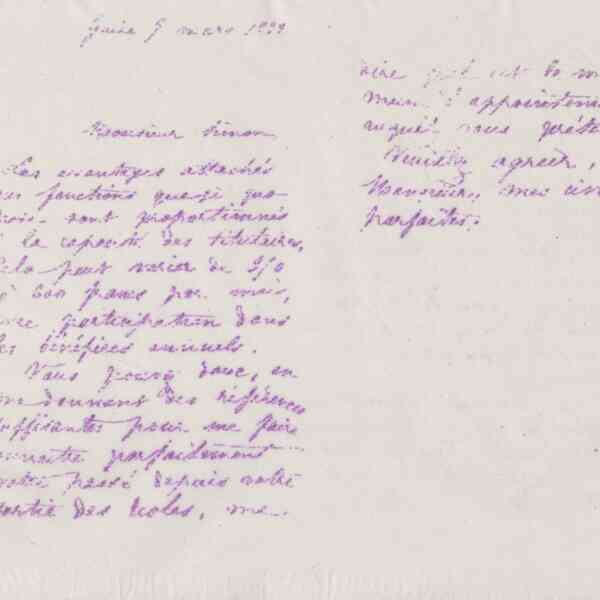 Guise 9 mars 1888
Monsieur Simon
Les avantages attachés
aux fonctions que je
sont proportionnés
à la capacité des titulaires,
Cela peut varier de 250
à 600 francs par mois,
avec participation dans
les bénéfices annuels.
Vous pouvez donc, en
me donnant des références
suffisantes pour me faire
connaître parfaitement
votre passé depuis votre
sortie des écoles, me
dire quel est le
d'appointements
auquel vous
Veuillez agréer,
Monsieur, mes
parfaites.